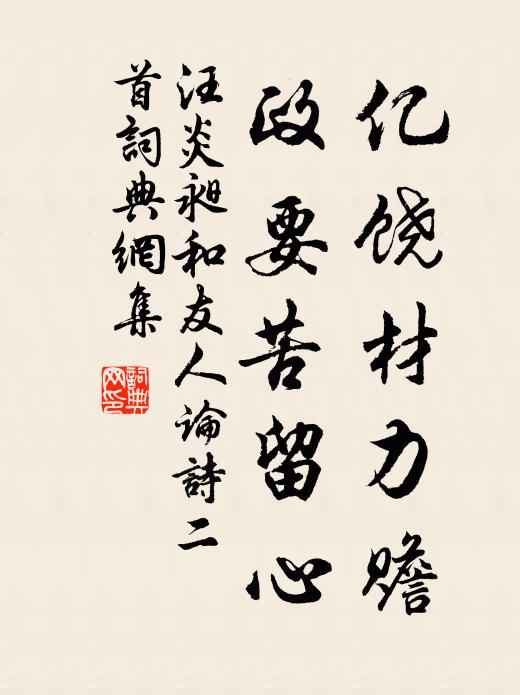 亿饶材力赡
政要苦留心
汪炎昶和友人論詩二
首詞典網集
詞典
网印